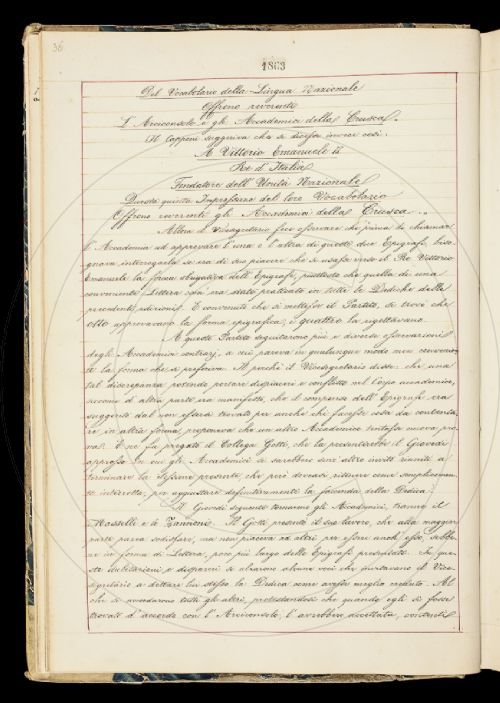 36
1863
Del Vocabolario della Lingua Nazionale
Offrono reverenti
L'Arciconsolo e gli Accademici della Crusca.
Il Capponi suggeriva che si dicesse invece così:
A Vittorio Emanuele II
Re d'Italia
Fondatore dell'Unità Nazionale
Questa quinta Impressione del loro Vocabolario
Offrono reverenti gli Accademici della Crusca."
Allora il Vicesegretario fece osservare che prima di chiamar
l'Accademia ad approvare l'una o l'altra di queste due Epigrafi, biso-
gnava interrogarla se era di suo piacere che si usasse verso il Re Vittorio
Emanuele la forma sbrigativa dell'Epigrafe, piuttosto che quella di una
conveniente Lettera com'era stato praticato in tutte le Dediche delle
precedenti edizioni. E convenuti che si mettesse il Partito, si trovò che
otto approvavano la forma epigrafica, e quattro la rigettavano.
A questo Partito seguitarono più e diverse osservazioni
degli Accademici contrarj, a cui pareva in qualunque modo non convenien-
te la forma che si preferiva. A perchè il Vicesegretario disse: che una
tal discrepanza potendo portare dispiaceri e conflitto nel Corpo accademico,
siccome d'altra parte era manifesto, che il compenso dell'Epigrafe era
suggerito dal non essersi trovato per anche chi facesse cosa da contentar-
si in altra forma, proponeva che un altro Accademico tentasse nuova pro-
va. E ne fu pregato il Collega Gotti, che la presenterebbe il Giovedì
appresso in cui gli Accademici si sarebbero senz'altro invito riuniti a
terminare la sessione presente, che però doveasi ritenere come semplicemen-
te interrotta, per aggiustare definitivamente la faccenda della Dedica.
Il Giovedì seguente tornarono gli Accademici, tranne il
Masselli e il Zannoni. Il Gotti presentò il suo lavoro, che alla maggior
parte parve sodisfare, ma non piaceva ad altri per essere anch'esso, sebbe-
ne in forma di Lettera, poco più largo delle Epigrafi presentate. In que-
ste dubitazioni e dispareri si alzarono alcune voci che invitavano il Vice-
segretario a dettare lui stesso la Dedica come avesse meglio creduto. Al
che si accordarono tutti gli altri, protestandosi che quando egli si fosse
trovato d'accordo con l'Arciconsolo, l'avrebbero accettata, contenti